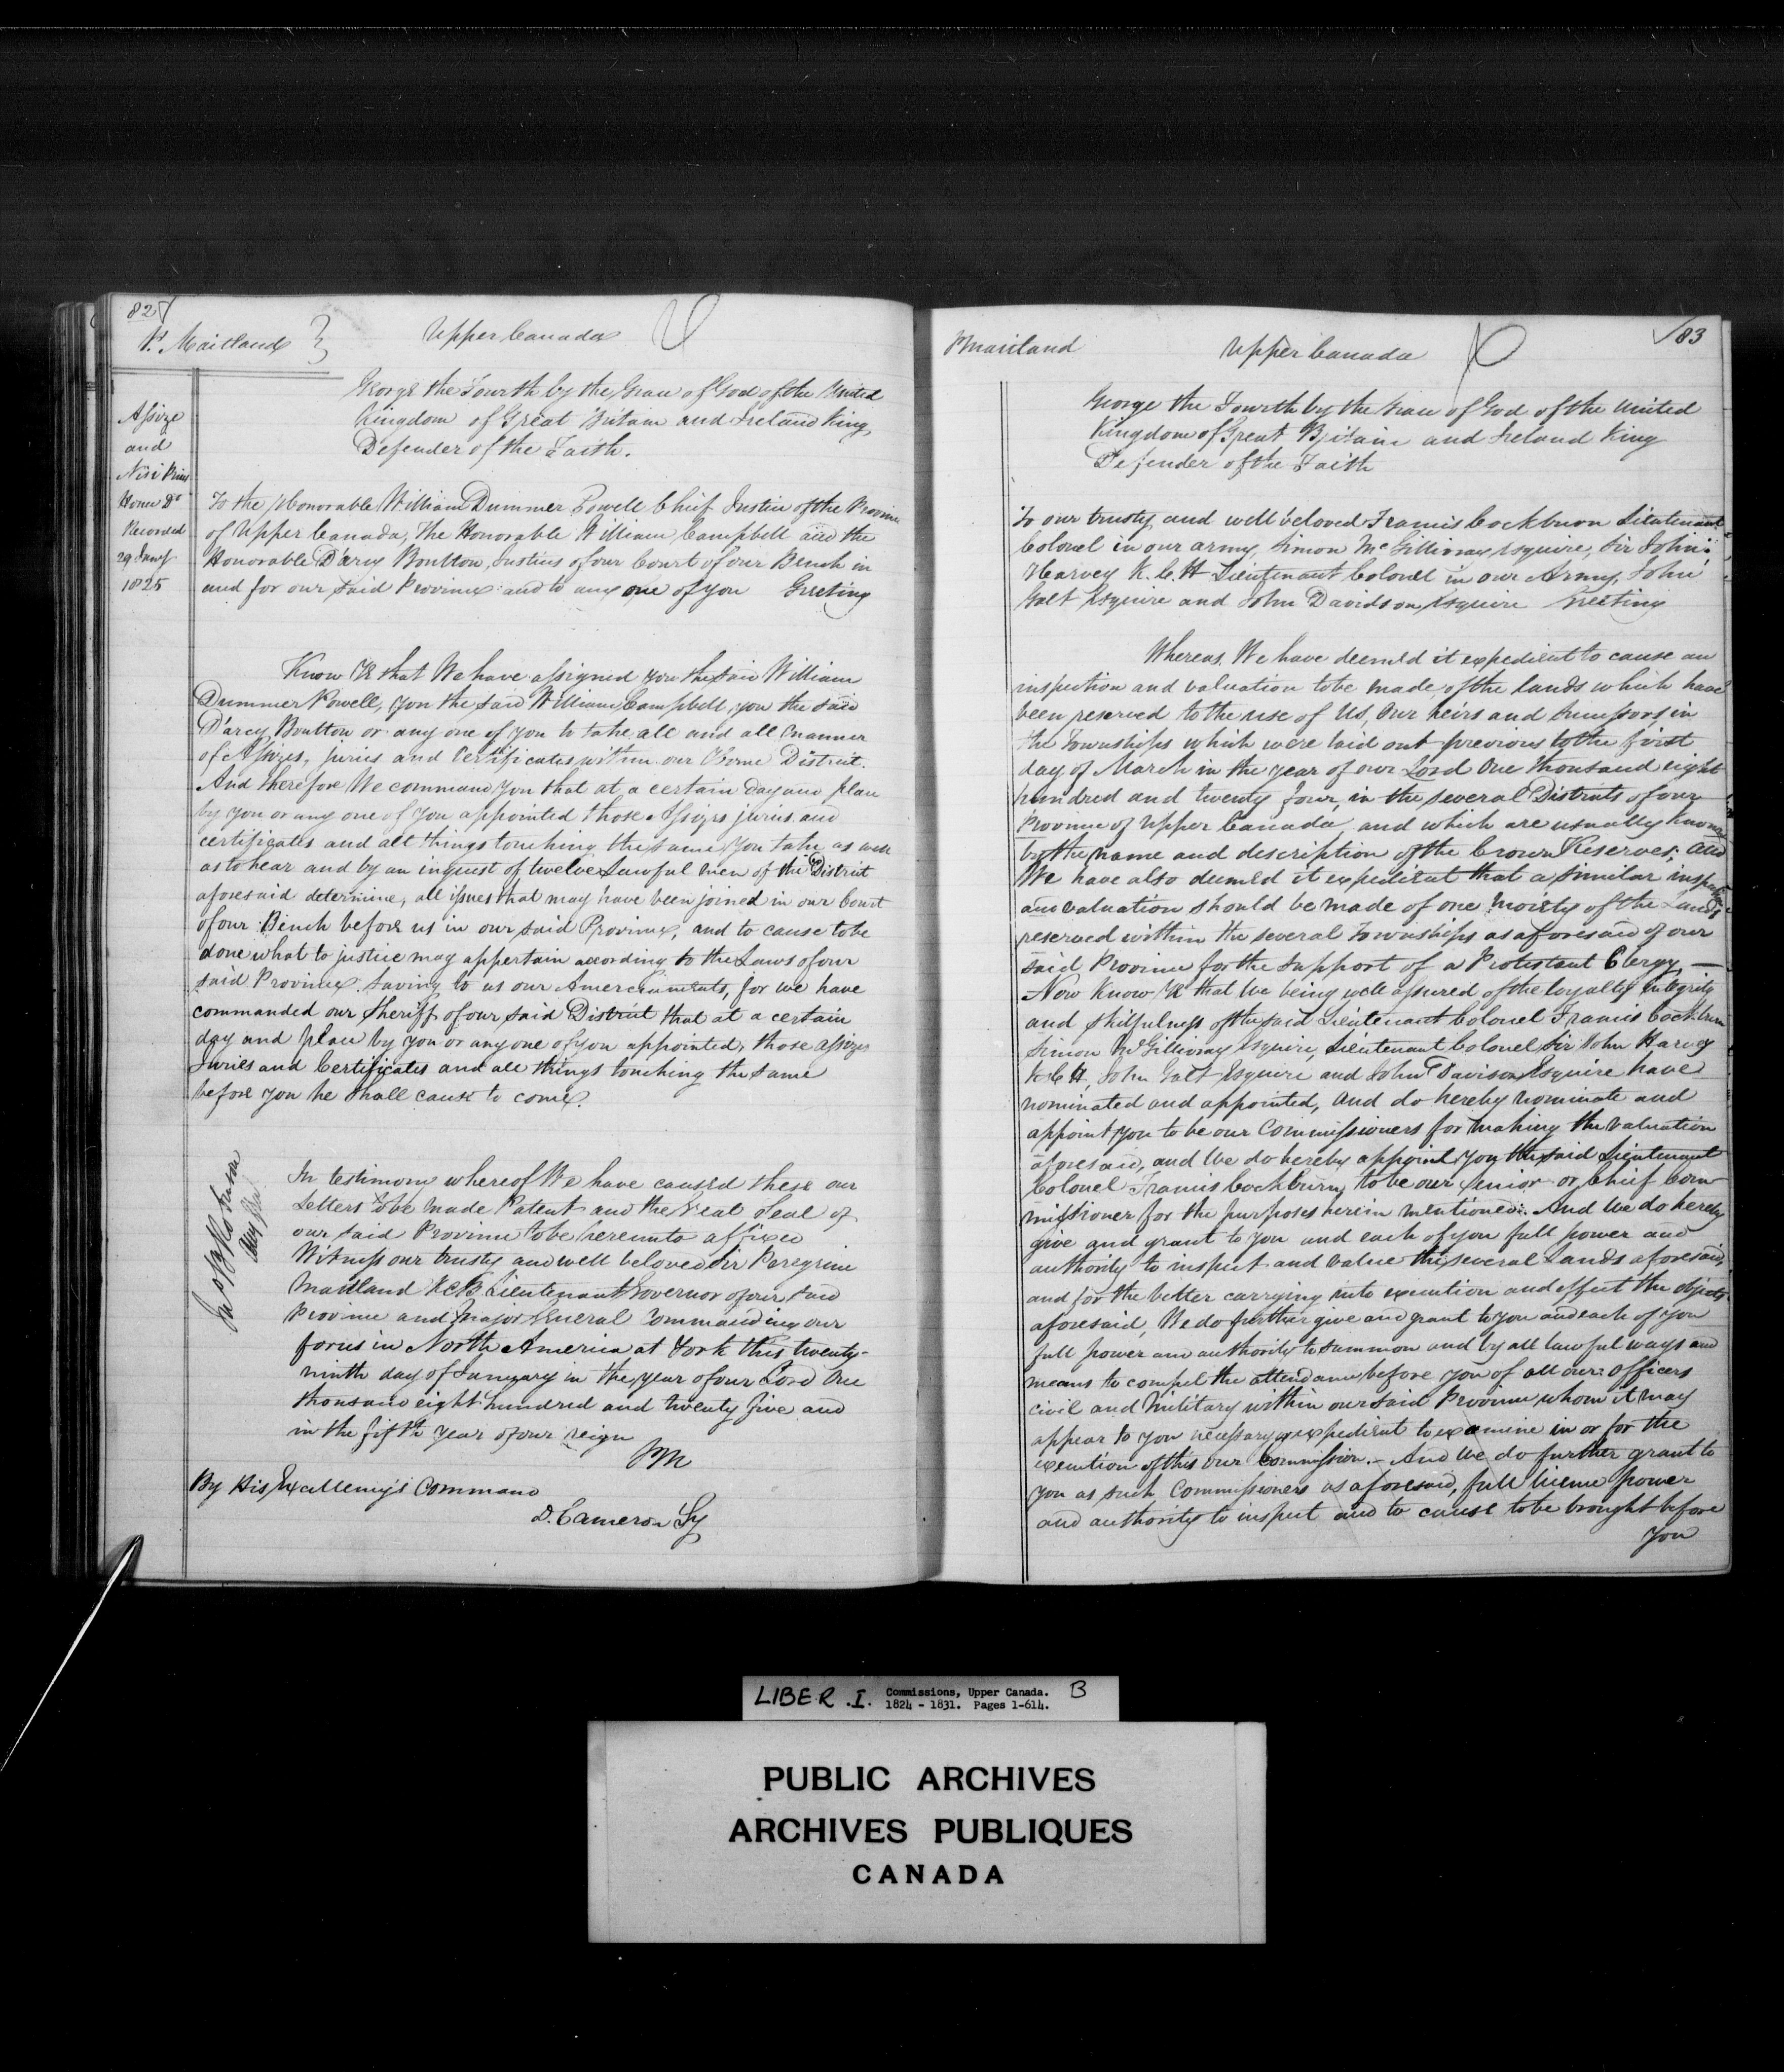 82
P. Maitland
Upper Canada
George the Fourth by the Grace of God of the United
Kingdom of Great Britain and Ireland King,
Defender of the Faith.
Assize
and
Nisi Prius
Home Dt
Recorded
29 Jany
1825
To the Honorable William Dummer Powell Chief Justice of the Province
of Upper Canada, The Honorable William Campbell and the
Honorable D'arcy Boulton, Justices of our Court of our Bench in
and for our said Province and to any one of you Greeting
Know Ye that We have assigned you the said William
Dummer Powell, you the said William Campbell, you the said
D'arcy Boulton or any one of you to take all and all manner
of Assizes, juries and Certificates within our Home District.
And therefore We command you that at a certain day and place
by you or any one of you appointed those Assizes juries and
certificates and all things touching the same you take as well
as to hear and by an inquest of twelve Lawful men of the District
aforesaid determine, all issues that may have been joined in our Court
of our Bench before us in our said Province, and to cause to be
done what to justice may appertain according to the Laws of our
said Province. Saving to us our Amerciaments, for we have
commanded our Sheriff of our said District that at a certain
day and place by you or any one of you appointed, those assizes
Juries and Certificates and all things touching the same
before you he shall cause to come.
In testimony whereof We have caused these our
Letters to be made Patent and the Great Seal of
our said Province to be hereunto affixed
Witness our trusty and well beloved Sir Peregrine
Maitland KCB Lieutenant Governor of our said
Province and Major General Commanding our
forces in North America at York this twenty-
ninth day of January in the year of our Lord One
thousand eight hundred and twenty five and
in the fifth year of our reign
PM
By His Excellency's Command
D. Cameron Sy
83
P Maitland
Upper Canada
George the Fourth by the Grace of God of the United
Kingdom of Great Britain and Ireland King
Defender of the Faith
To our trusty and well beloved Francis Cockburn Lieutenant
Colonel in our army, Simon McGillivray Esquire, Sir John
Harvey K.C.H Lieutenant Colonel in our Army, John
Galt Esquire and John Davidson Esquire Greeting
Whereas We have deemed it expedient to cause an
inspection and valuation to be made of the lands which have
been reserved to the use of Us, Our heirs and Successors, in
the Townships which were laid out previous to the first
day of March in the year of our Lord One thousand eight
hundred and twenty four, in the several Districts of our
Province of Upper Canada, and which are usually known
by the name and description of the Crown Reserves, And
We have also deemed it expedient that a similar inspection
and valuation should be made of one moiety of the Lands
reserved within the several Townships as aforesaid of our
said Province for the support of a Protestant Clergy, —
Now Know Ye that We being well assured of the loyalty integrity
and skilfulness of the said Lieutenant Colonel Francis Cockburn
Simon McGillivray Esquire, Lieutenant Colonel Sir John Harvey
K C H, John Galt Esquire and John Davison Esquire have
nominated and appointed, and do hereby nominate and
appoint you to be our Commissioners for making the valuation
aforesaid, and We do hereby appoint you the said Lieutenant
Colonel Francis Cockburn, to be our Senior or Chief Com-
missioner for the purposes herein mentioned. And We do hereby
give and grant to you and each of you full power and
authority to inspect and value the several Lands aforesaid,
and for the better carrying into execution and effect the objects
aforesaid, We do further give and grant to you and each of you
full power and authority to summon and by all lawful ways and
means to compel the attendance before you of all our officers
civil and military within our said Province whom it may
appear to you necessary or expedient to examine in or for the
execution of this our Commission. And We do further grant to
you as such Commissioners as aforesaid, full license power
and authority to inspect and to cause to be brought before
you
LIBER .I. Commissions, Upper Canada. B
1824 - 1831. Pages 1-614.
PUBLIC ARCHIVES
ARCHIVES PUBLIQUES
CANADA